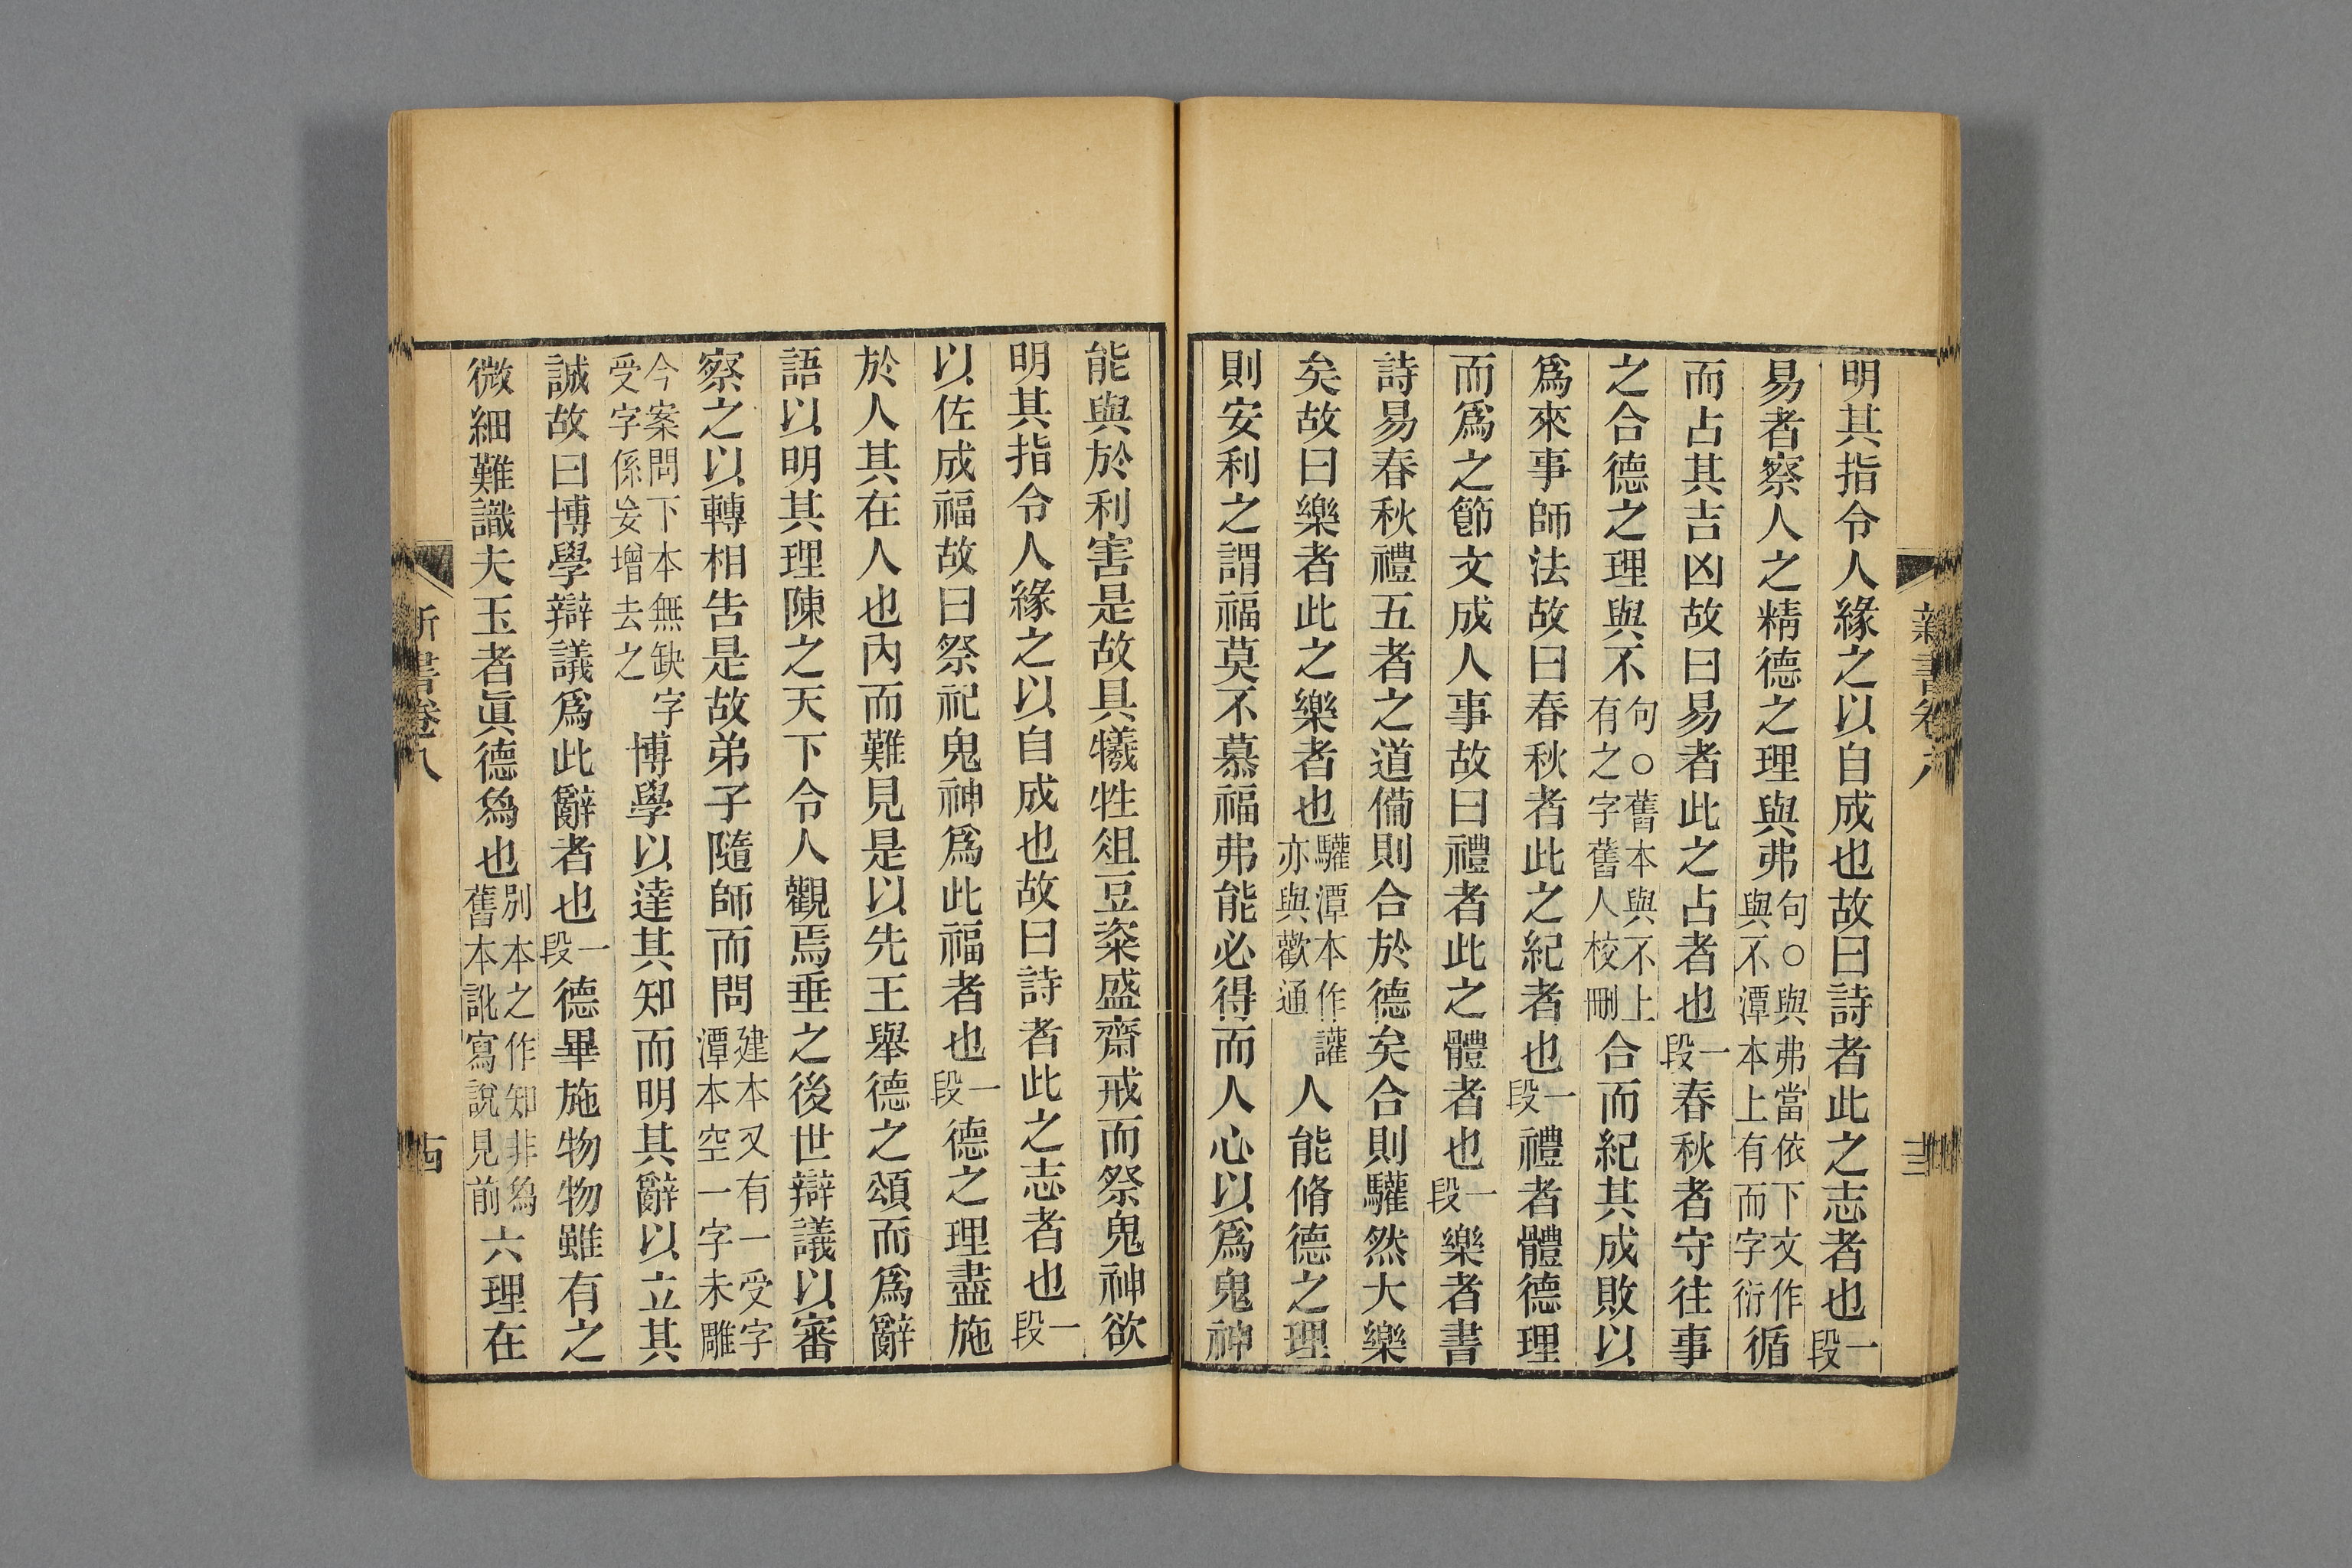 新書卷八
明其指令人緣之以自成也故曰詩者此之志者也一段
易者察人之精德之理與弗句○與弗當依下文作與不潭本上有而字衍循
而占其吉凶故曰易者此之占者也一段春秋者守往事
之合德之理與不句○舊本與不上有之字舊人校刪合而紀其成敗以
爲來事師法故曰春秋者此之紀者也一段禮者體德理
而爲之節文成人事故曰禮者此之體者也一段樂者書
詩易春秋禮五者之道備則合於德矣合則驩然大樂
矣故曰樂者此之樂者也驩潭本作讙亦與歡通人能脩德之理
則安利之謂福莫不慕福弗能必得而人心以爲鬼神
能與於利害是故具犧牲俎豆粢盛齋戒而祭鬼神欲
明其指令人緣之以自成也故曰詩者此之志者也一段
以佐成福故曰祭祀鬼神爲此福者也一段德之理盡施
於人其在人也內而難見是以先王舉德之頌而爲辭
語以明其理陳之天下令人觀焉垂之後世辯議以審
察之以轉相告是故弟子隨師而問建本又有一受字潭本空一字未雕
今案問下本無缺字受字係妄增去之博學以達其知而明其辭以立其
誠故曰博學辯議爲此辭者也一段德畢施物物雖有之
微細難識夫玉者眞德爲也別本之作知非爲舊本訛寫說見前六理在
書卷八